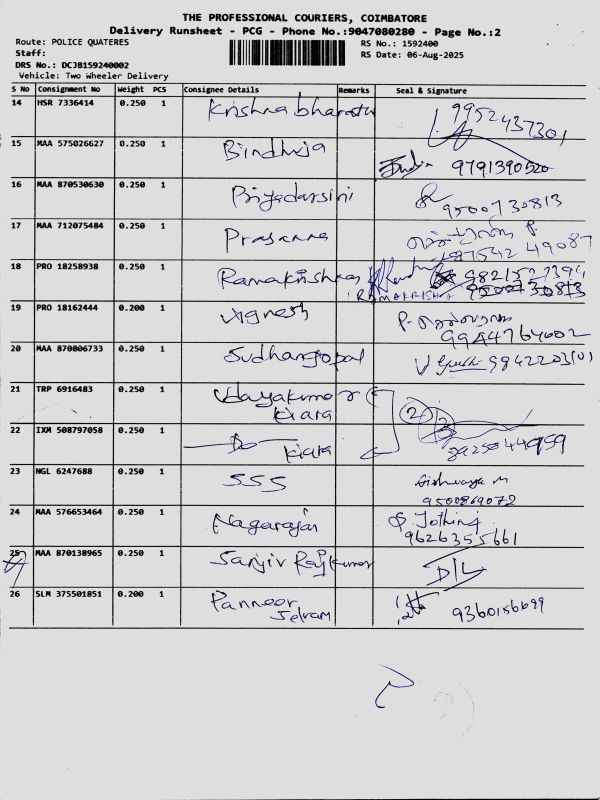 THE PROFESSIONAL COURIERS, COIMBATORE
Delivery Runsheet - PCG - Phone No.:9047080280 - Page No.:2
Route: POLICE QUATERES
RS No.: 1592400
Staff:
RS Date: 06-Aug-2025
DRS No.: DCJB159240002
Vehicle: Two Wheeler Delivery
S No Consignment No Weight PCS Consignee Details Remarks Seal & Signature
14 HSR 7336414 0.250 1 Krishna bharath 9952437301
15 MAA 575026627 0.250 1 Bindhuja 9791390520
16 MAA 870530630 0.250 1 Priyadarsini 9500730813
17 MAA 712075484 0.250 1 Prasanna 87542 49087
18 PRO 18258938 0.250 1 Ramakrishnan
RAMAKRISHNA
19 PRO 18162444 0.200 1 Vignesh 9944764002
20 MAA 870806733 0.250 1 Sudhangopal
21 TRP 6916483 0.250 1 Udayakumar
Kiara
22 IXM 508797058 0.250 1 Do Kiara
23 NGL 6247688 0.250 1 SSS Aishwarya M
9500869072
24 MAA 576653464 0.250 1 Nagarajan Jothimj
9626355661
25 MAA 870138965 0.250 1 Sanjiv Rajkumar D/L
26 SLM 375501851 0.200 1 Panneer
Selvam 9360156699